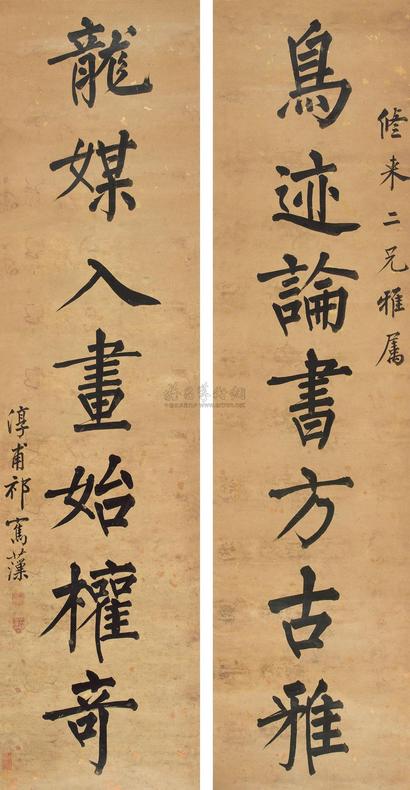 修来二兄雅属
鳥迹論書方古雅
龍媒入畫始權奇
淳甫祁寯藻